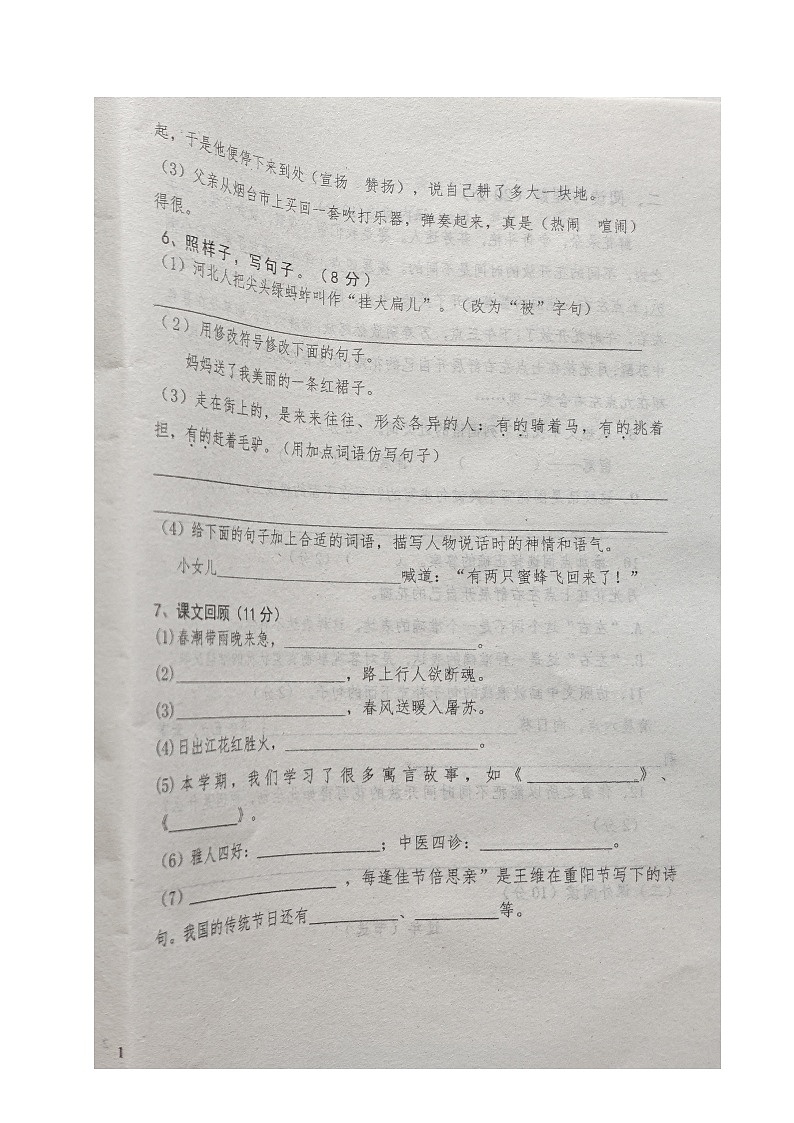 起，于是他便停下来到处（宣扬　赞扬），说自己耕了多大一块地。
（3）父亲从烟台市上买回一套吹打乐器，弹奏起来，真是（热闹　喧闹）
得很。
6、照样子，写句子。（8分）
（1）河北人把尖头绿蚂蚱叫作“挂大扁儿”。（改为“被”字句）
（2）用修改符号修改下面的句子。
妈妈送了我美丽的一条红裙子。
（3）走在街上的，是来来往往、形态各异的人：有的骑着马，有的挑着
担，有的赶着毛驴。（用加点词语仿写句子）
（4）给下面的句子加上合适的词语，描写人物说话时的神情和语气。
小女儿____________________喊道：“有两只蜜蜂飞回来了！”
7、课文回顾（11分）
(1)春潮带雨晚来急，____________________。
(2)____________________，路上行人欲断魂。
(3)____________________，春风送暖入屠苏。
(4)日出江花红胜火，____________________。
(5)本学期，我们学习了很多寓言故事，如《____________》、
《________》。
（6）雅人四好：____________；中医四诊：________________。
（7）________________，每逢佳节倍思亲”是王维在重阳节写下的诗
句。我国的传统节日还有__________、__________等。
1